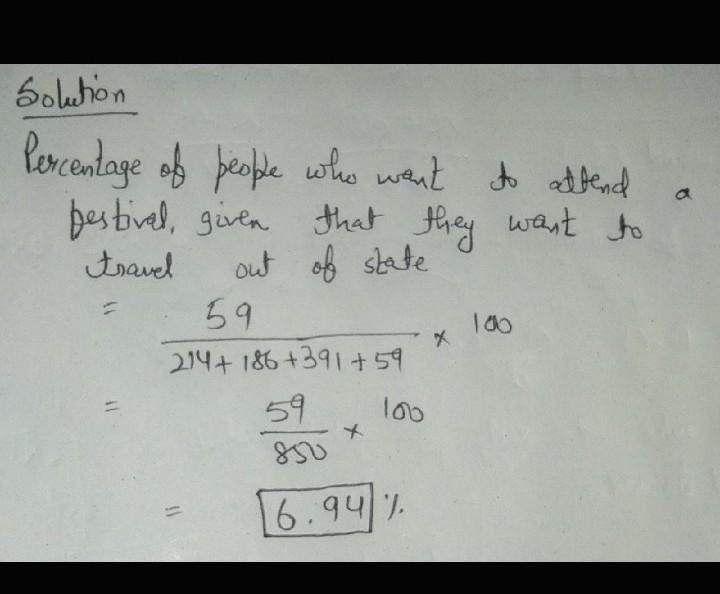 Solution
Percentage of people who want to attend a
festival, given that they want to
travel out of state
= 59
214 + 186 + 391 + 59 × 100
= 59
850 × 100
= 6.94 %